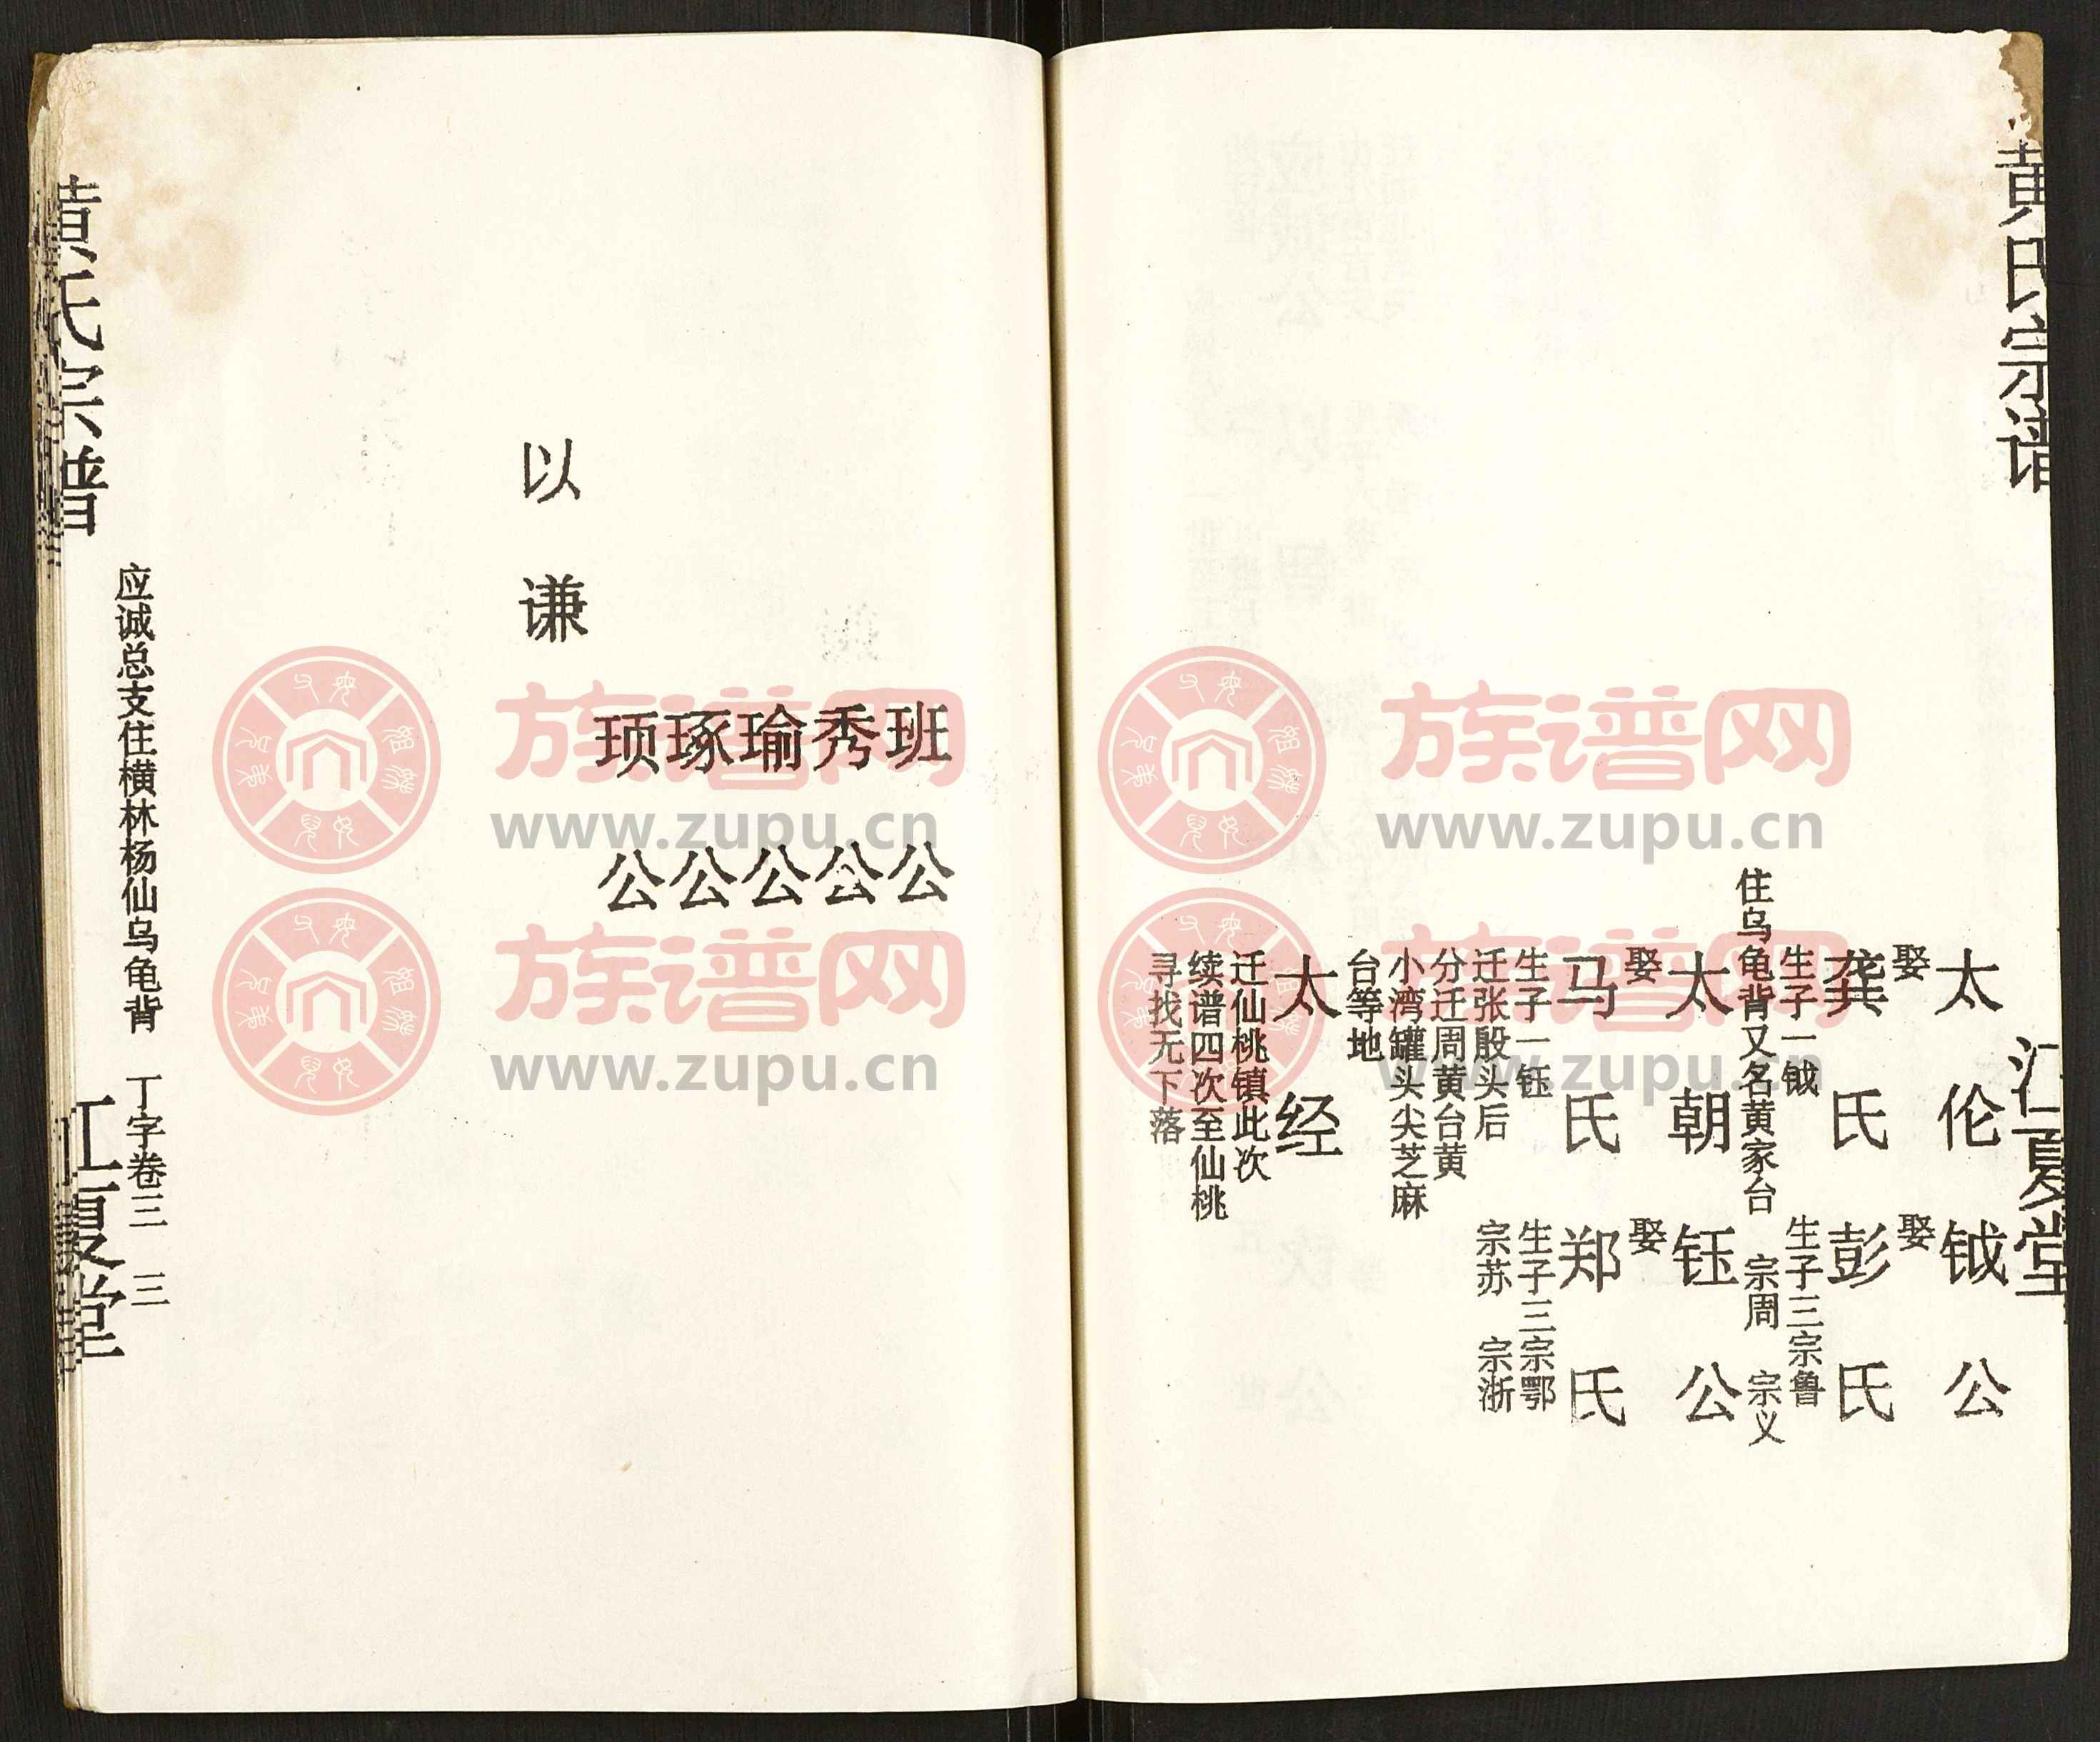 黄氏宗谱
江夏堂
太伦
钺公
娶
龚氏
娶
彭氏
生子一钺
生子三宗鲁
住乌龟背又名黄家台
宗周 宗义
太朝
钰公
娶
马氏
娶
郑氏
生子一钰
生子三宗鄂
迁张殷头后
宗苏 宗浙
分迁周黄台黄
小湾罐头尖芝麻
台等地
太经
迁仙桃镇此次
续谱四次至仙桃
寻找无下落
班公
秀公
瑜公
琢公
顼公
以谦
应诚总支住横林杨仙乌龟背 丁字卷三 三
黄氏宗谱
江夏堂
族谱网
www.zupu.cn
族谱网
www.zupu.cn
族谱网
www.zupu.cn
族谱网
www.zupu.cn